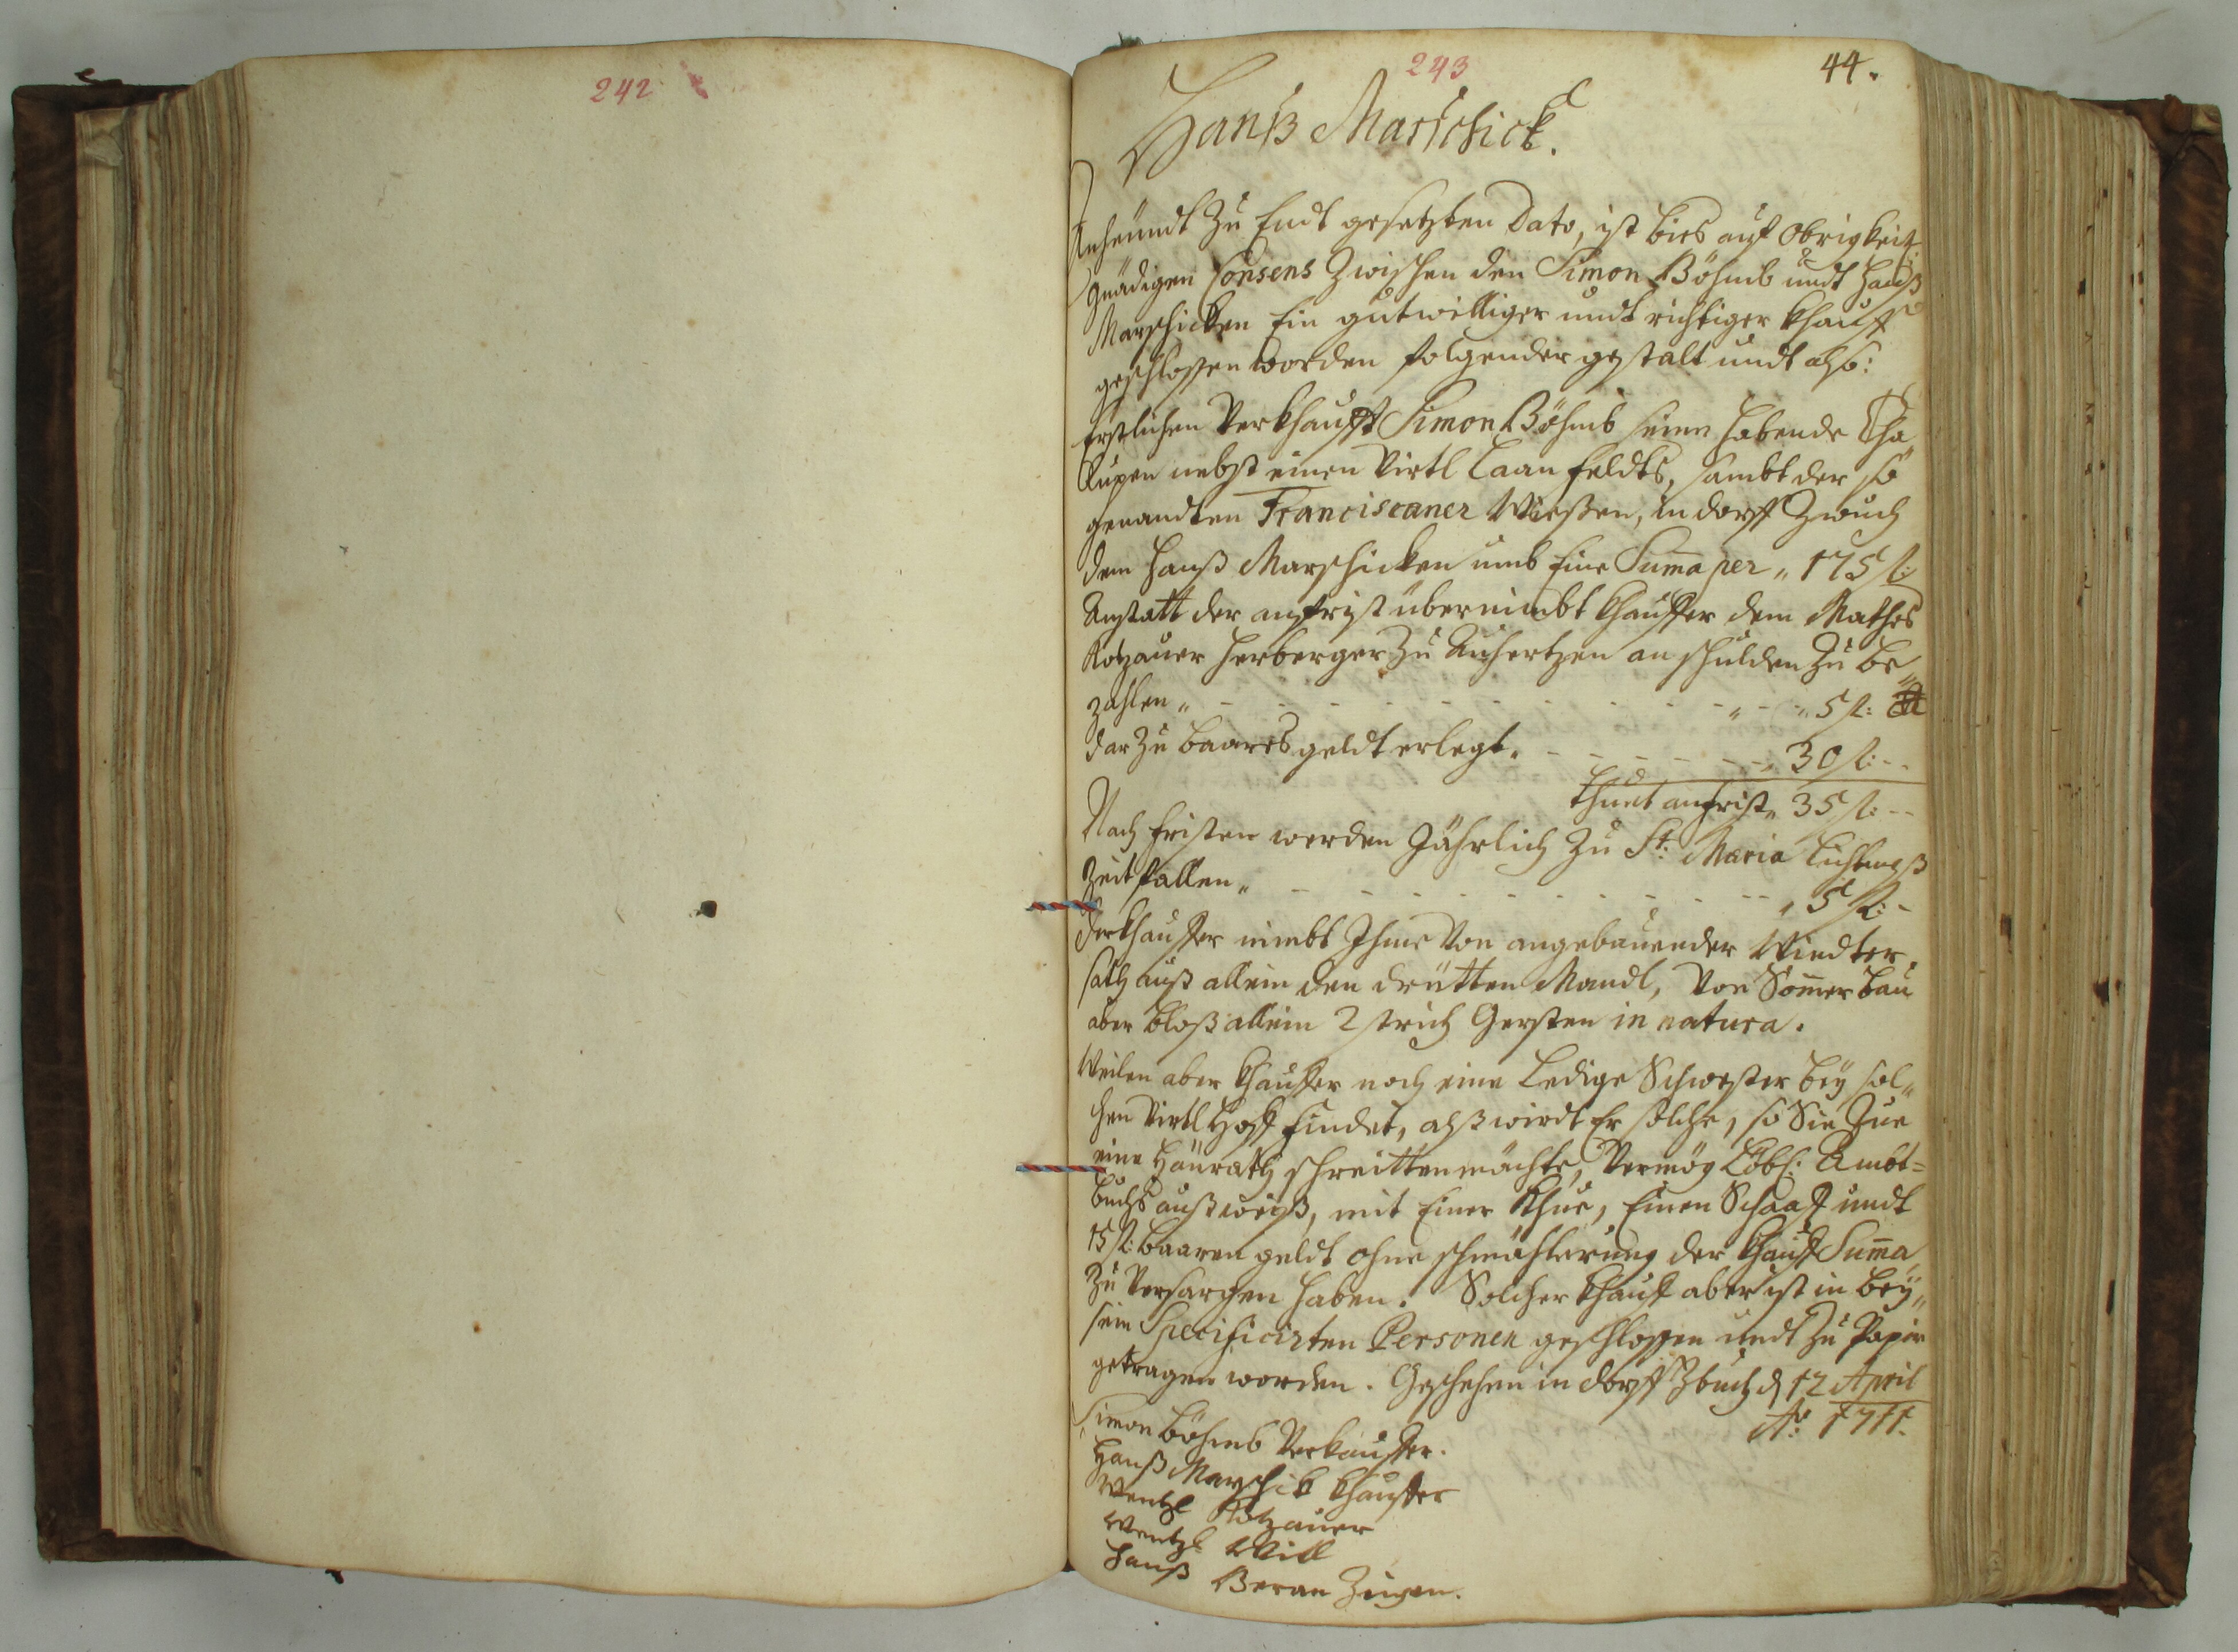 242
243
44.
Hanß Marschick.
Anheündt Zu Endt gesetzten Dato, ist bies auf Obrigkeit:
Gnädigen Consens Zwischen den Simon Böhmb undt Hanß
Marschicken Ein gutwilliger undt richtiger Khauff
geschlossen worden folgender gestalt undt alß:
Erstlichen Verkhaufft Simon Böhmb seine habende Cha
luppen nebst einen Virtl Laan feldts, sambt der so
genandten Franciscaner Wießen, in dorff Zwuch
dem Hanß Marschicken umb Eine Suma per „ 175 f:
Anstatt der anfrist übernimbt Khauffer dem Mathes
Kotzauer Herberger Zu Auhertzen an schulden Zu be„
zahlen „ - - - - - - - - - - „ - - „ 5 f:
dar Zu baares geldt erlegt. - - - - - - „ 30 f: - -
Thuet anfrist „ 35 f: - -
Nach fristen werden Jährlich Zu St: Maria Lichtmeß
Zeit fallen „ - - - - - - - - - - „ 5 f: -
Verkhauffer nimbt Ihme Von angebauender Windter„
sath auß allein den dritten Mandl, Von Somer bau
aber bloß allein 2 strich Gersten in natura.
Weilen aber Khauffer noch eine Ledige Schwester bey sol„
chen Virtl Hoff findet, alß wirdt Er solche, so Sie Zue
eine Heürath schreitten möchte, Vermög Löbl: Ambt=
buchs außweiß, mit Einer Khue, Einen Schaaff undt
15 f: baaren geldt ohne schmählerung der Khauff Suma
Zu Versorgen haben. Solcher Khauff aber ist in bey„
sein Specificirten Personen geschlossen undt Zu Papier
getragen worden. Geschehen in dorff Zbuch d 12 April
Ao: 1711.
Simon Böhmb Verkauffer.
Hanß Marschik Khauffer
Wentzl Kotzauer
Wentzl Will
Hanß Beran Zeugen.